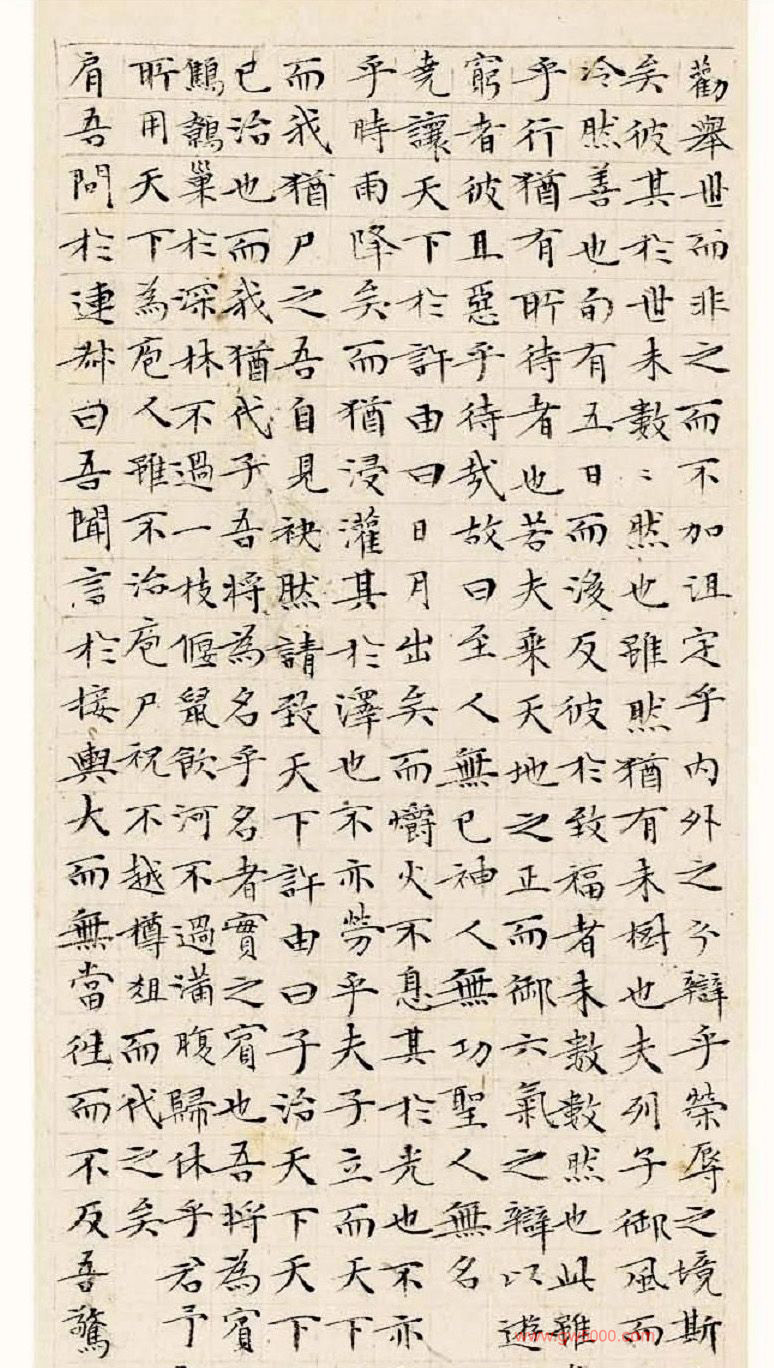 勸舉世而非之而不加沮定乎内外之分辯乎榮辱之境斯
矣彼其於世未數〻然也雖然猶有未樹也夫列子御風而
冷然善也旬有五日而後反彼於致福者未數數然也此雖
乎行猶有所待者也若夫乘天地之正而御六氣之辯以遊
窮者彼且惡乎待哉故曰至人無已神人無功聖人無名
堯讓天下於許由曰日月出矣而爝火不息其於光也不亦
乎時雨降矣而猶浸灌其於澤也不亦勞乎夫子立而天下
而我猶尸之吾自見缺然請致天下許由曰子治天下天下
已治也而我猶代子吾將為名乎名者實之賓也吾將為賓
鷦鷯巢於深林不過一枝偃鼠飲河不過滿腹歸休乎君予
所用天下為庖人雖不治庖尸祝不越樽俎而代之矣
肩吾問於連叔曰吾聞言於接輿大而無當徃而不反吾驚